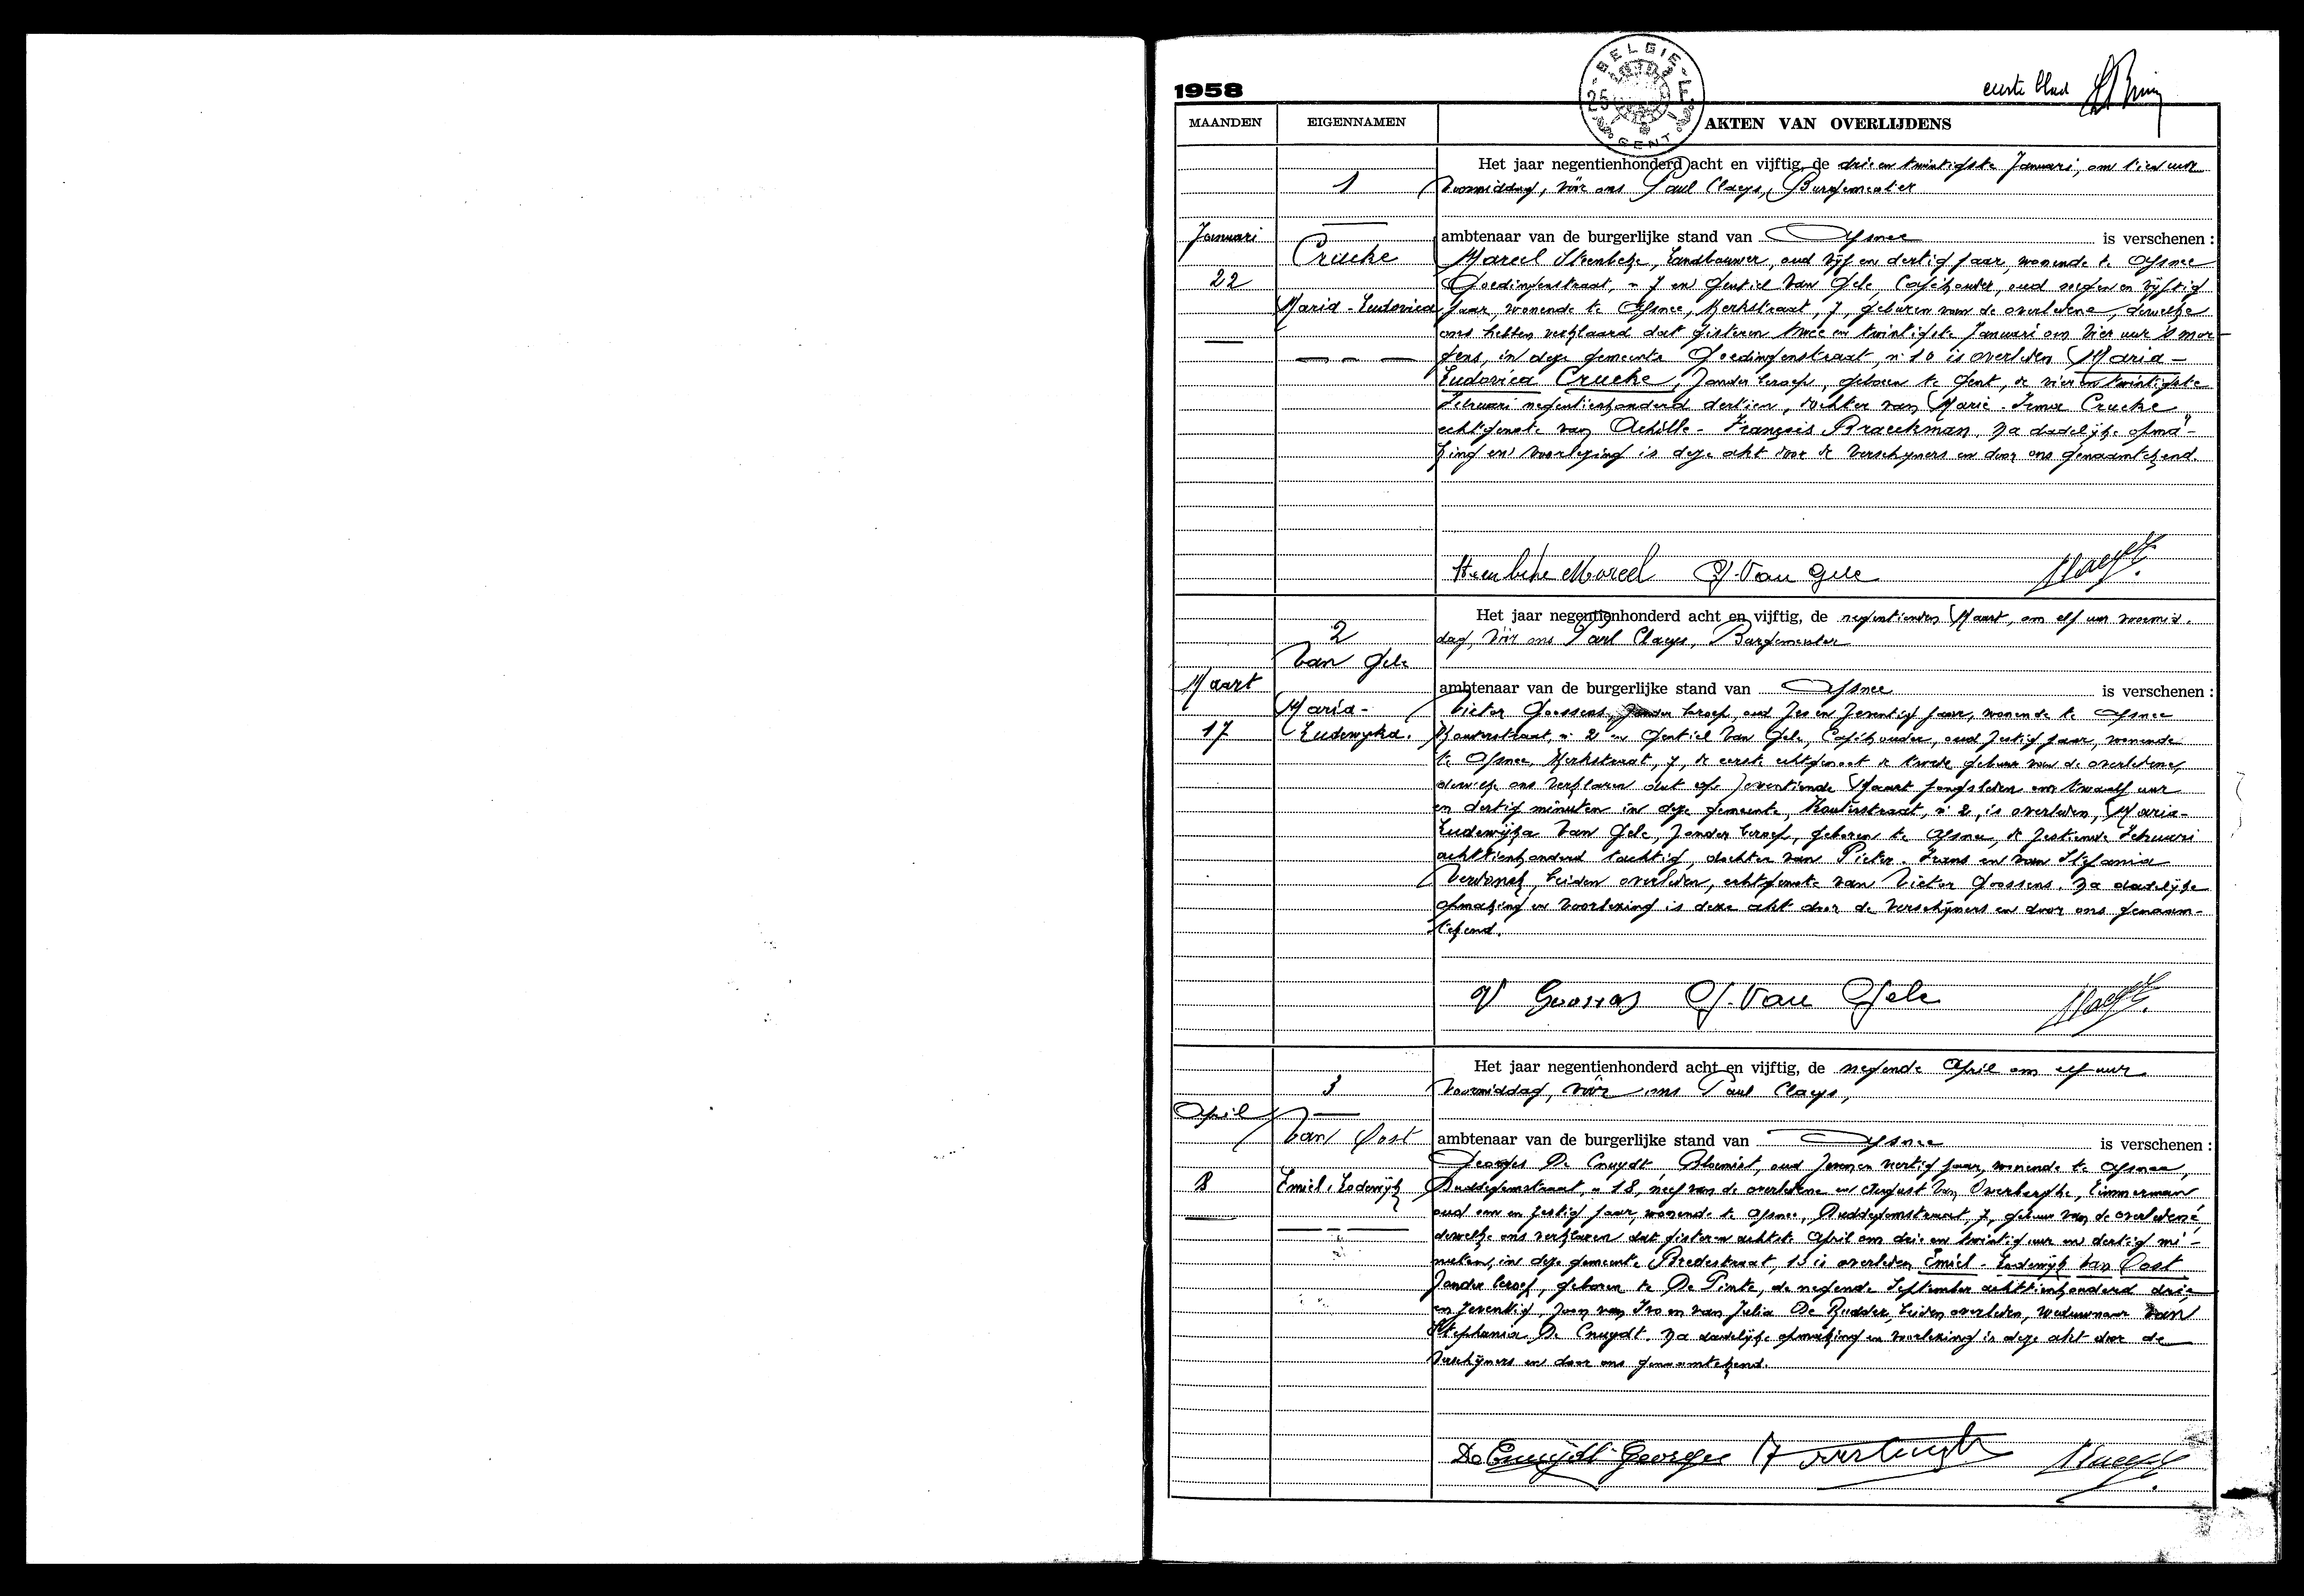 1958
BELGIE
GENT
eerste blad
MAANDEN EIGENNAMEN AKTEN VAN OVERLIJDENS
Het jaar negentienhonderd acht en vijftig, de drie en twintigste Januari, om tien uur
1 voormiddag, vóór ons Paul Claeys, Burgemeester
Januari ambtenaar van de burgerlijke stand van Afsnee is verschenen :
Crucke Marcel Steenbeke, Landbouwer, oud vijf en dertig jaar, wonende te Afsnee
22 Goedingenstraat, n° 7 en Gentiel Van Gele, Caféhouder, oud negen en vijftig
Maria-Ludovica jaar, wonende te Afsnee, Kerkstraat, 7, geburen van de overledene, dewelke
ons hebben verklaard dat gisteren twee en twintigste Januari om vier uur 's mor-
gens, in deze gemeente Goedingenstraat, n° 10 is overleden Maria-
Ludovica Crucke, zonder beroep, geboren te Gent, de vier en twintigste
Februari negentienhonderd dertien, dochter van Marie-Irma Crucke,
echtgenote van Achille-François Braeckman. Na dadelijke opma-
king en voorlezing is deze akt door de verschijners en door ons genaamtekend.
Steenbeke Marcel G. Van Gele
Het jaar negentienhonderd acht en vijftig, de negentienden Maart, om elf uur voormid-
2 dag, vóór ons Paul Claeys, Burgemeester
Van Gele
Maart ambtenaar van de burgerlijke stand van Afsnee is verschenen :
Maria- Victor Goossens, zonder beroep, oud zes en zeventig jaar, wonende te Afsnee
17 Ludewyka. Houtestraat, n° 2 en Gentiel Van Gele, Caféhouder, oud zestig jaar, wonende
te Afsnee, Kerkstraat, 7, de eerste echtgenoot de tweede gebuur van de overledene,
dewelke ons verklaren dat op zeventiende Maart jongstleden om twaalf uur
en dertig minuten in deze gemeente, Houtestraat, n° 2, is overleden, Maria-
Ludewijka Van Gele, zonder beroep, geboren te Afsnee, de zestiende Februari
achttienhonderd tachtig, dochter van Pieter-Frans en van Stefania
Verdonck, beiden overleden, echtgenote van Victor Goossens. Na dadelijke
opmaking en voorlezing is deze akt door de verschijners en door ons genaam-
tekend.
V Goossens G. Van Gele
Het jaar negentienhonderd acht en vijftig, de negende April om elf uur
3 voormiddag, vóór ons Paul Claeys,
April
Van Oost ambtenaar van de burgerlijke stand van Afsnee is verschenen :
Georges De Cnuydt, Bloemist, oud zeven en veertig jaar, wonende te Afsnee,
8 Emiel-Lodewijk Duddegemstraat, n° 18, neef van de overledene en August Van Overberghe, Timmerman,
oud een en zestig jaar, wonende te Afsnee, Duddegemstraat, 7, gebuur van de overledene,
dewelke ons verklaren dat gisteren achtste April om drie en twintig uur en dertig mi-
nuten, in deze gemeente Bredestraat, 13 is overleden Emiel-Lodewijk Van Oost
zonder beroep, geboren te De Pinte, de negende September achttienhonderd drie
en zeventig, zoon van Ivo en van Julia De Rudder, beiden overleden, weduwnaar van
Stephania De Cnuydt. Na dadelijke opmaking en voorlezing is deze akt door de
verschijners en door ons genaamtekend.
De Cnuydt Georges